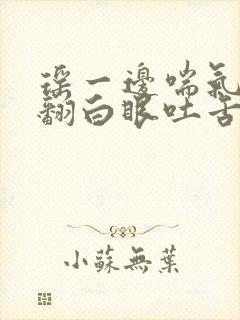 瑶一邊喘氣
翻白眼吐舌
小蘇無葉